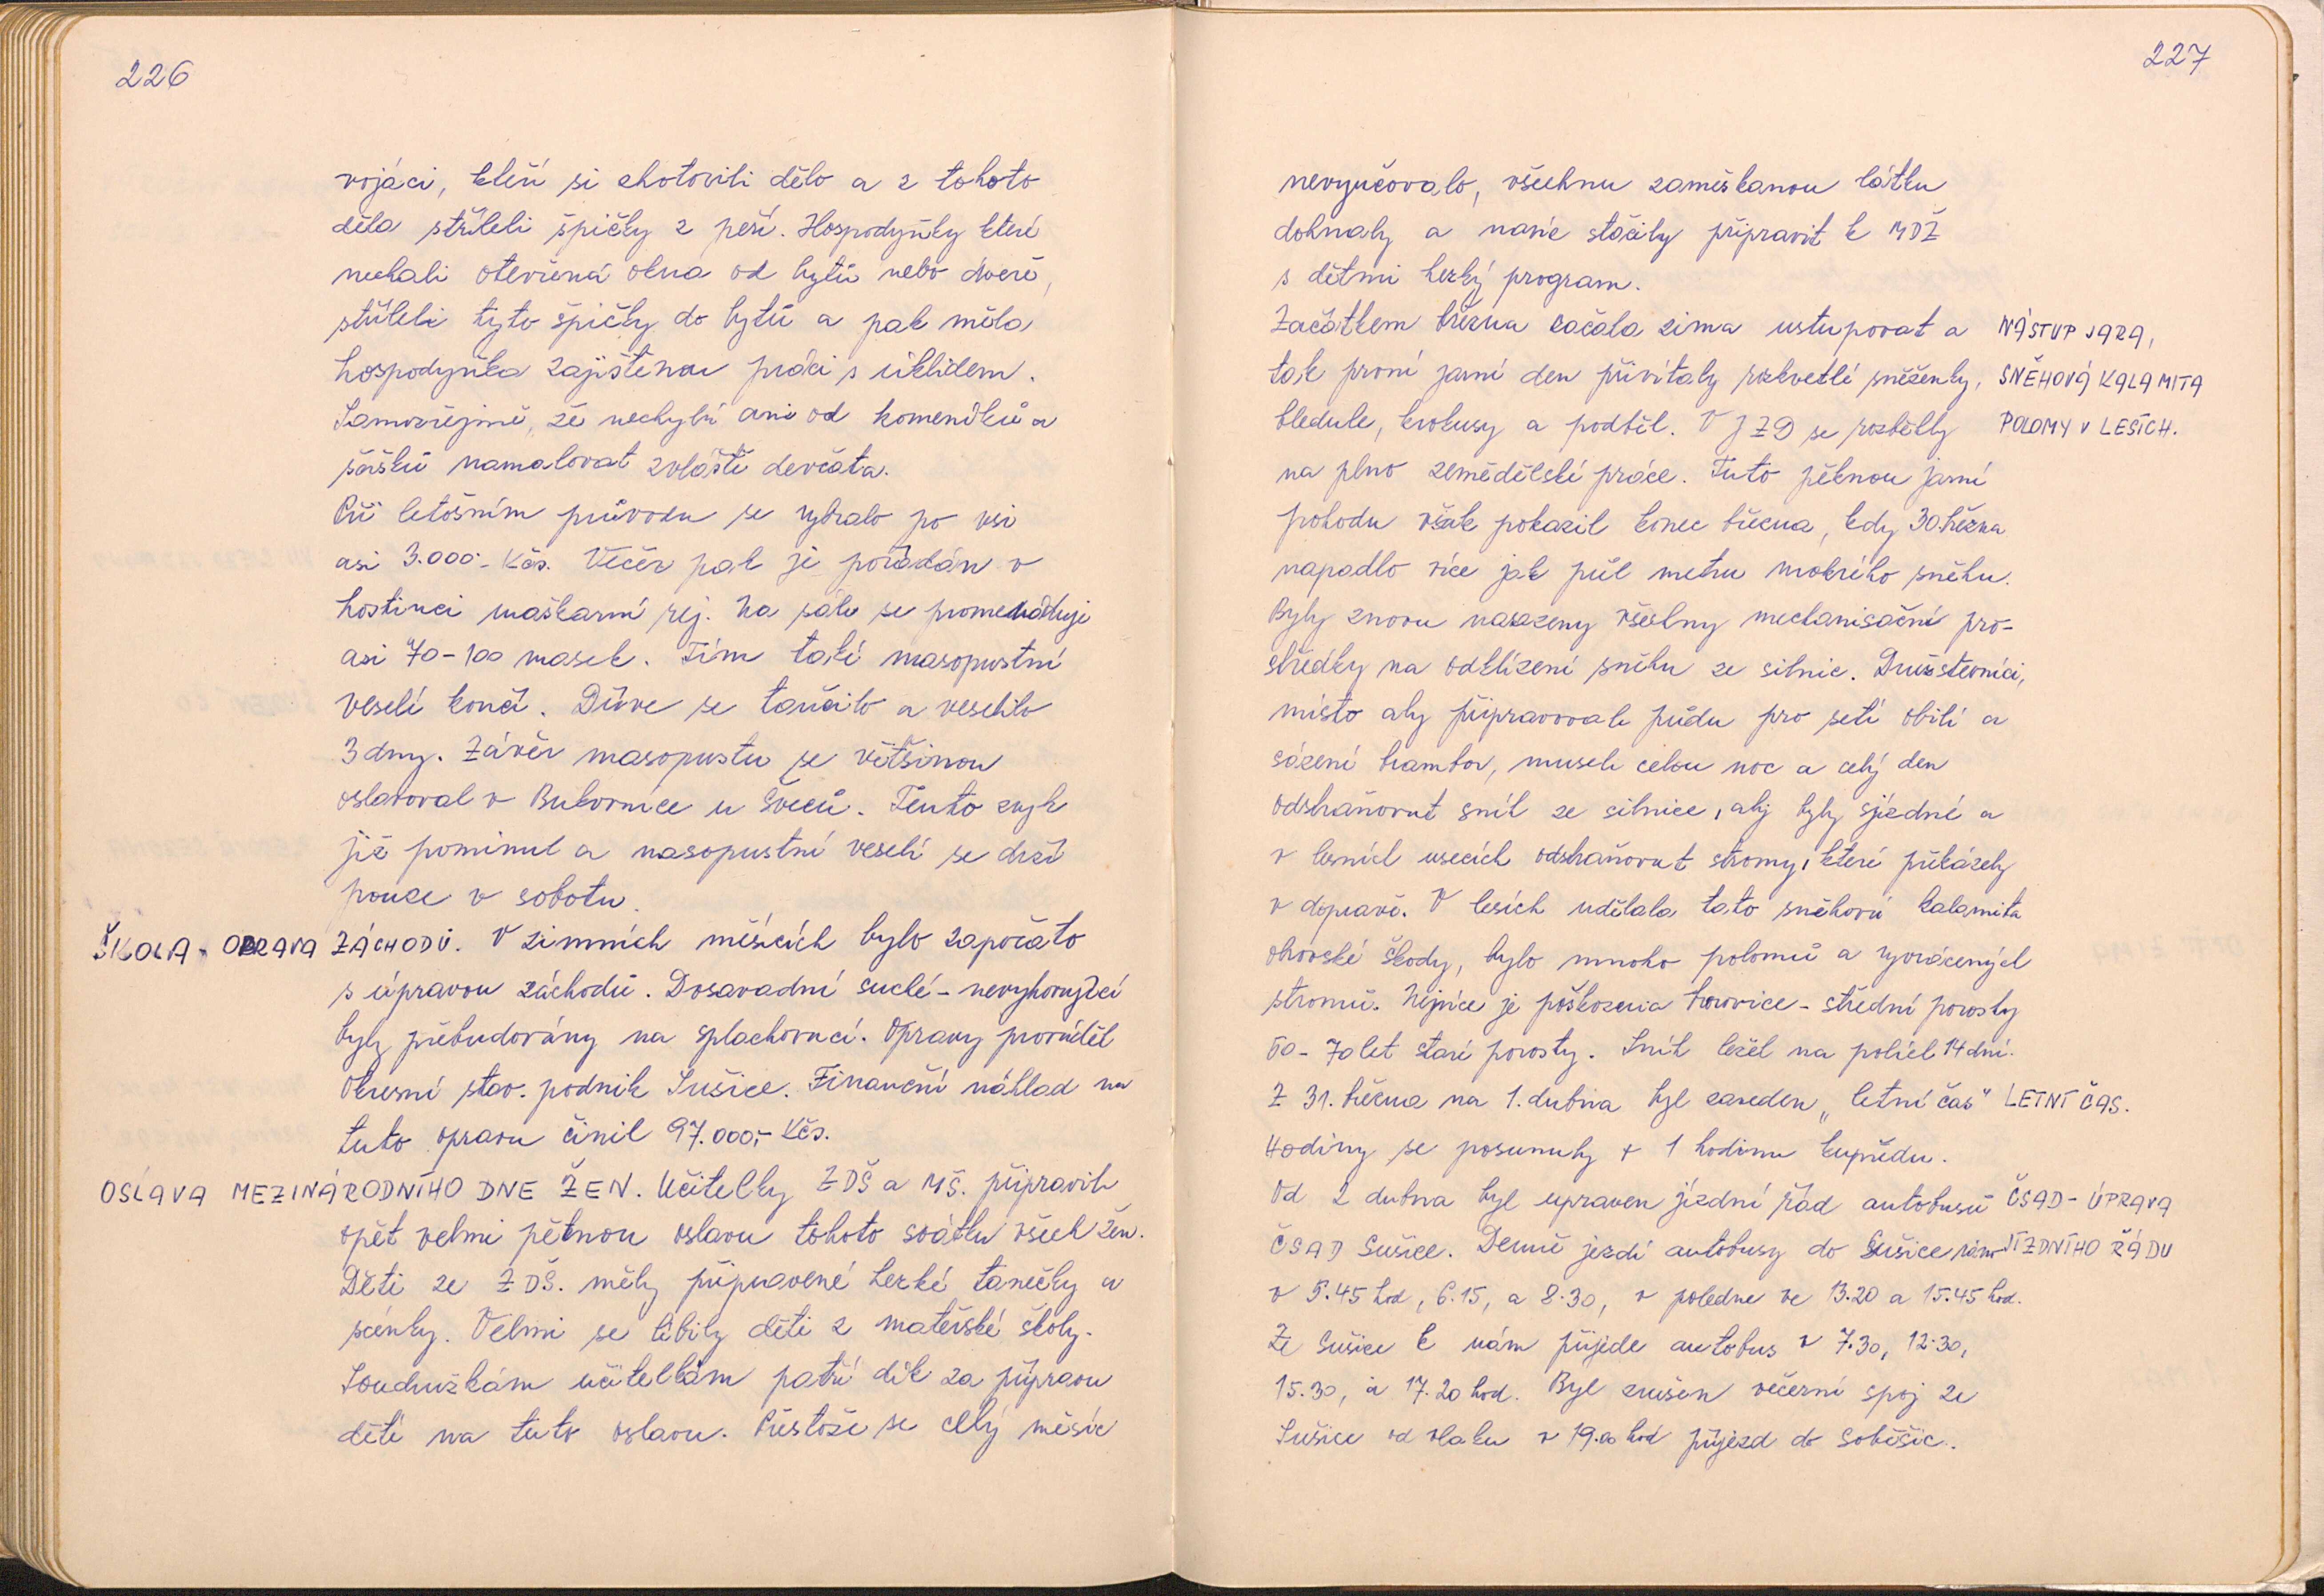 226
vojáci, kteří si zhotovili dělo a z tohoto
děla stříleli špičky z peří. Hospodyňky které
nechali otevřená okna od bytů nebo dveře,
stříleli tyto špičky do bytů a pak měla
hospodyňka zajištěnou práci s úklidem.
Samozřejmě, že nechybí ani od kominíků a
šašků namalovat zvláště devčata.
Při letošním průvodu se vybralo po vsi
asi 3.000.- Kčs. Večer pak je pořádán v
hostinci maškarní rej. Na sále se promenáduje
asi 70-100 masek. Tím také masopustní
veselí končí. Dříve se tančilo a veselilo
3 dny. Závěr masopustu se většinou
oslavoval v Bukovníce u Šveců. Tento zvyk
již pominul a masopustní veselí se drží
pouze v sobotu.
ŠKOLA - OPRAVA ZÁCHODŮ. V zimních měsících bylo započato
s úpravou záchodů. Dosavadní suché - nevyhovující
byly přebudovány na splachovací. Opravy prováděl
Okresní stav. podnik Sušice. Finanční náklad na
tuto opravu činil 97.000,- Kčs.
OSLAVA MEZINÁRODNÍHO DNE ŽEN. Učitelky ZDŠ a MŠ. připravili
opět velmi pěknou oslavu tohoto svátku všech žen.
Děti ze ZDŠ. měly připravené hezké tanečky a
scénky. Velmi se líbily děti z mateřské školy.
Soudružkám učitelkám patří dík za přípravu
dětí na tuto oslavu. Přestože se celý měsíc
227
nevyučovalo, všechnu zameškanou látku
dohnaly a navíc stačily připravit k MDŽ
s dětmi hezký program.
Začátkem března začala zima ustupovat a NÁSTUP JARA,
tak první jarní den přivítaly rozkvetlé sněženky, SNĚHOVÁ KALAMITA
bledule, krokusy a podběl. V JZD se rozběhly POLOMY V LESÍCH.
na plno zemědělské práce. Tuto pěknou jarní
pohodu však pokazil konec března, kdy 30. března
napadlo více jak půl metru mokrého sněhu.
Byly znovu nasazeny všechny mechanisační pro-
středky na odklízení sněhu ze silnic. Družstevníci,
místo aby připravovali půdu pro setí obilí a
sázení brambor, museli celou noc a celý den
odstraňovat sníh ze silnice, aby byly sjízdné a
v lesních usecích odstraňovat stromy, které překážely
v dopravě. V lesích udělala tato sněhová kalamita
obrovské škody, bylo mnoho polomů a vyvrácených
stromů. Nejvíce je poškozena borovice - střední porosty
60 - 70 let staré porosty. Sníh ležel na polích 14 dní.
Z 31. března na 1. dubna byl zaveden "letní čas" LETNÍ ČAS.
Hodiny se posunuly + 1 hodinu kupředu.
Od 2 dubna byl upraven jízdní řád autobusů ČSAD - ÚPRAVA
ČSAD Sušice. Denně jezdí autobusy do Sušice ráno JÍZDNÍHO ŘÁDU
v 5.45 hod, 6.15, a 8.30, v poledne ve 13.20 a 15.45 hod.
Ze Sušice k nám přijede autobus v 7.30, 12.30,
15.30, a 17.20 hod. Byl zrušen večerní spoj ze
Sušice od vlaku v 19.00 hod příjezd do Soběšic.